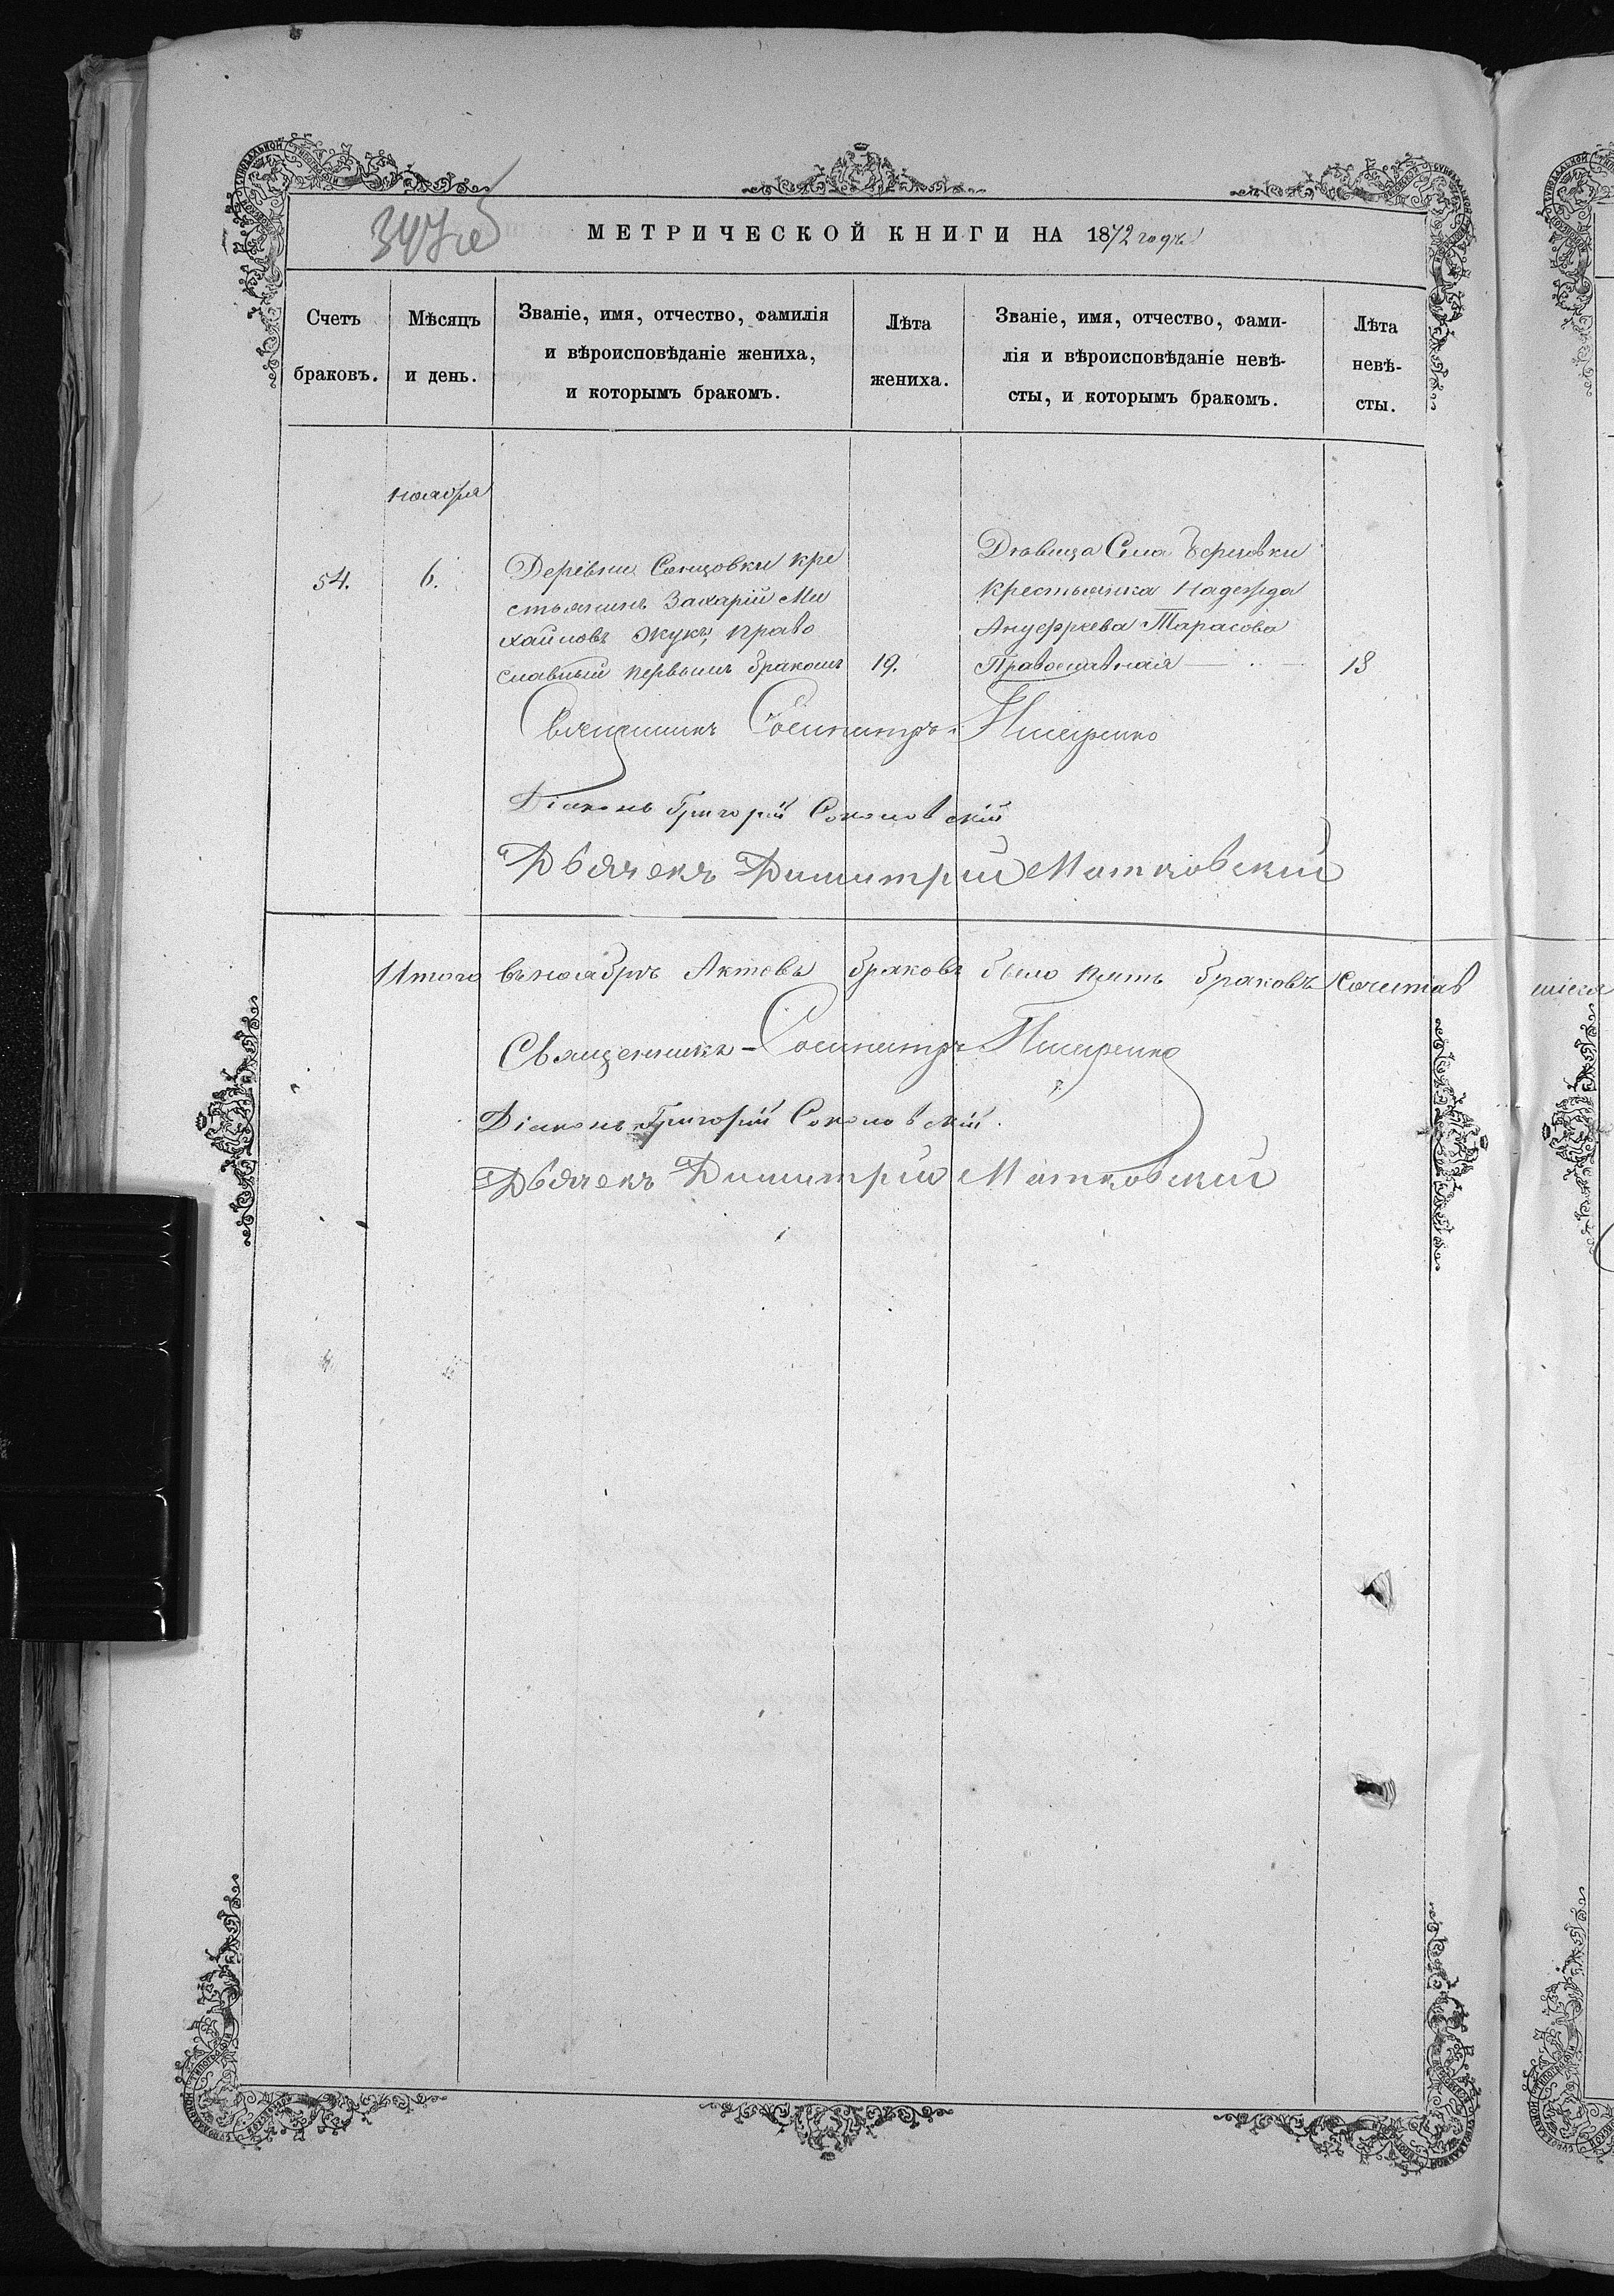 347об
МЕТРИЧЕСКОЙ КНИГИ НА 1872 годъ
Счетъ браковъ.
Мѣсяцъ и день.
Званіе, имя, отчество, фамилія
и вѣроисповѣданіе жениха,
и которымъ бракомъ.
Лѣта жениха.
Званіе, имя, отчество, фами-
лія и вѣроисповѣданіе невѣ-
сты, и которымъ бракомъ.
Лѣта невѣ-
сты.
ноября
54.
6.
Деревни Сонцовки кре
стьянинъ Захарій Ми
хайловъ Жукъ, право
славный первымъ бракомъ
19.
Дѣвица Села
крестьянка Надежда
Ануфріева Тарасова
Православная
18
Священникъ Сосипатръ
Діаконъ Григорій Соколовскій
Дьячекъ Димитрий Матковский
Итого въ ноябрѣ Актовъ браковъ было пять браковъ Сочетав
шихся
Священникъ - Сосипатръ
Діаконъ Григорій Соколовскій.
Дьячекъ Димитрий Матковский